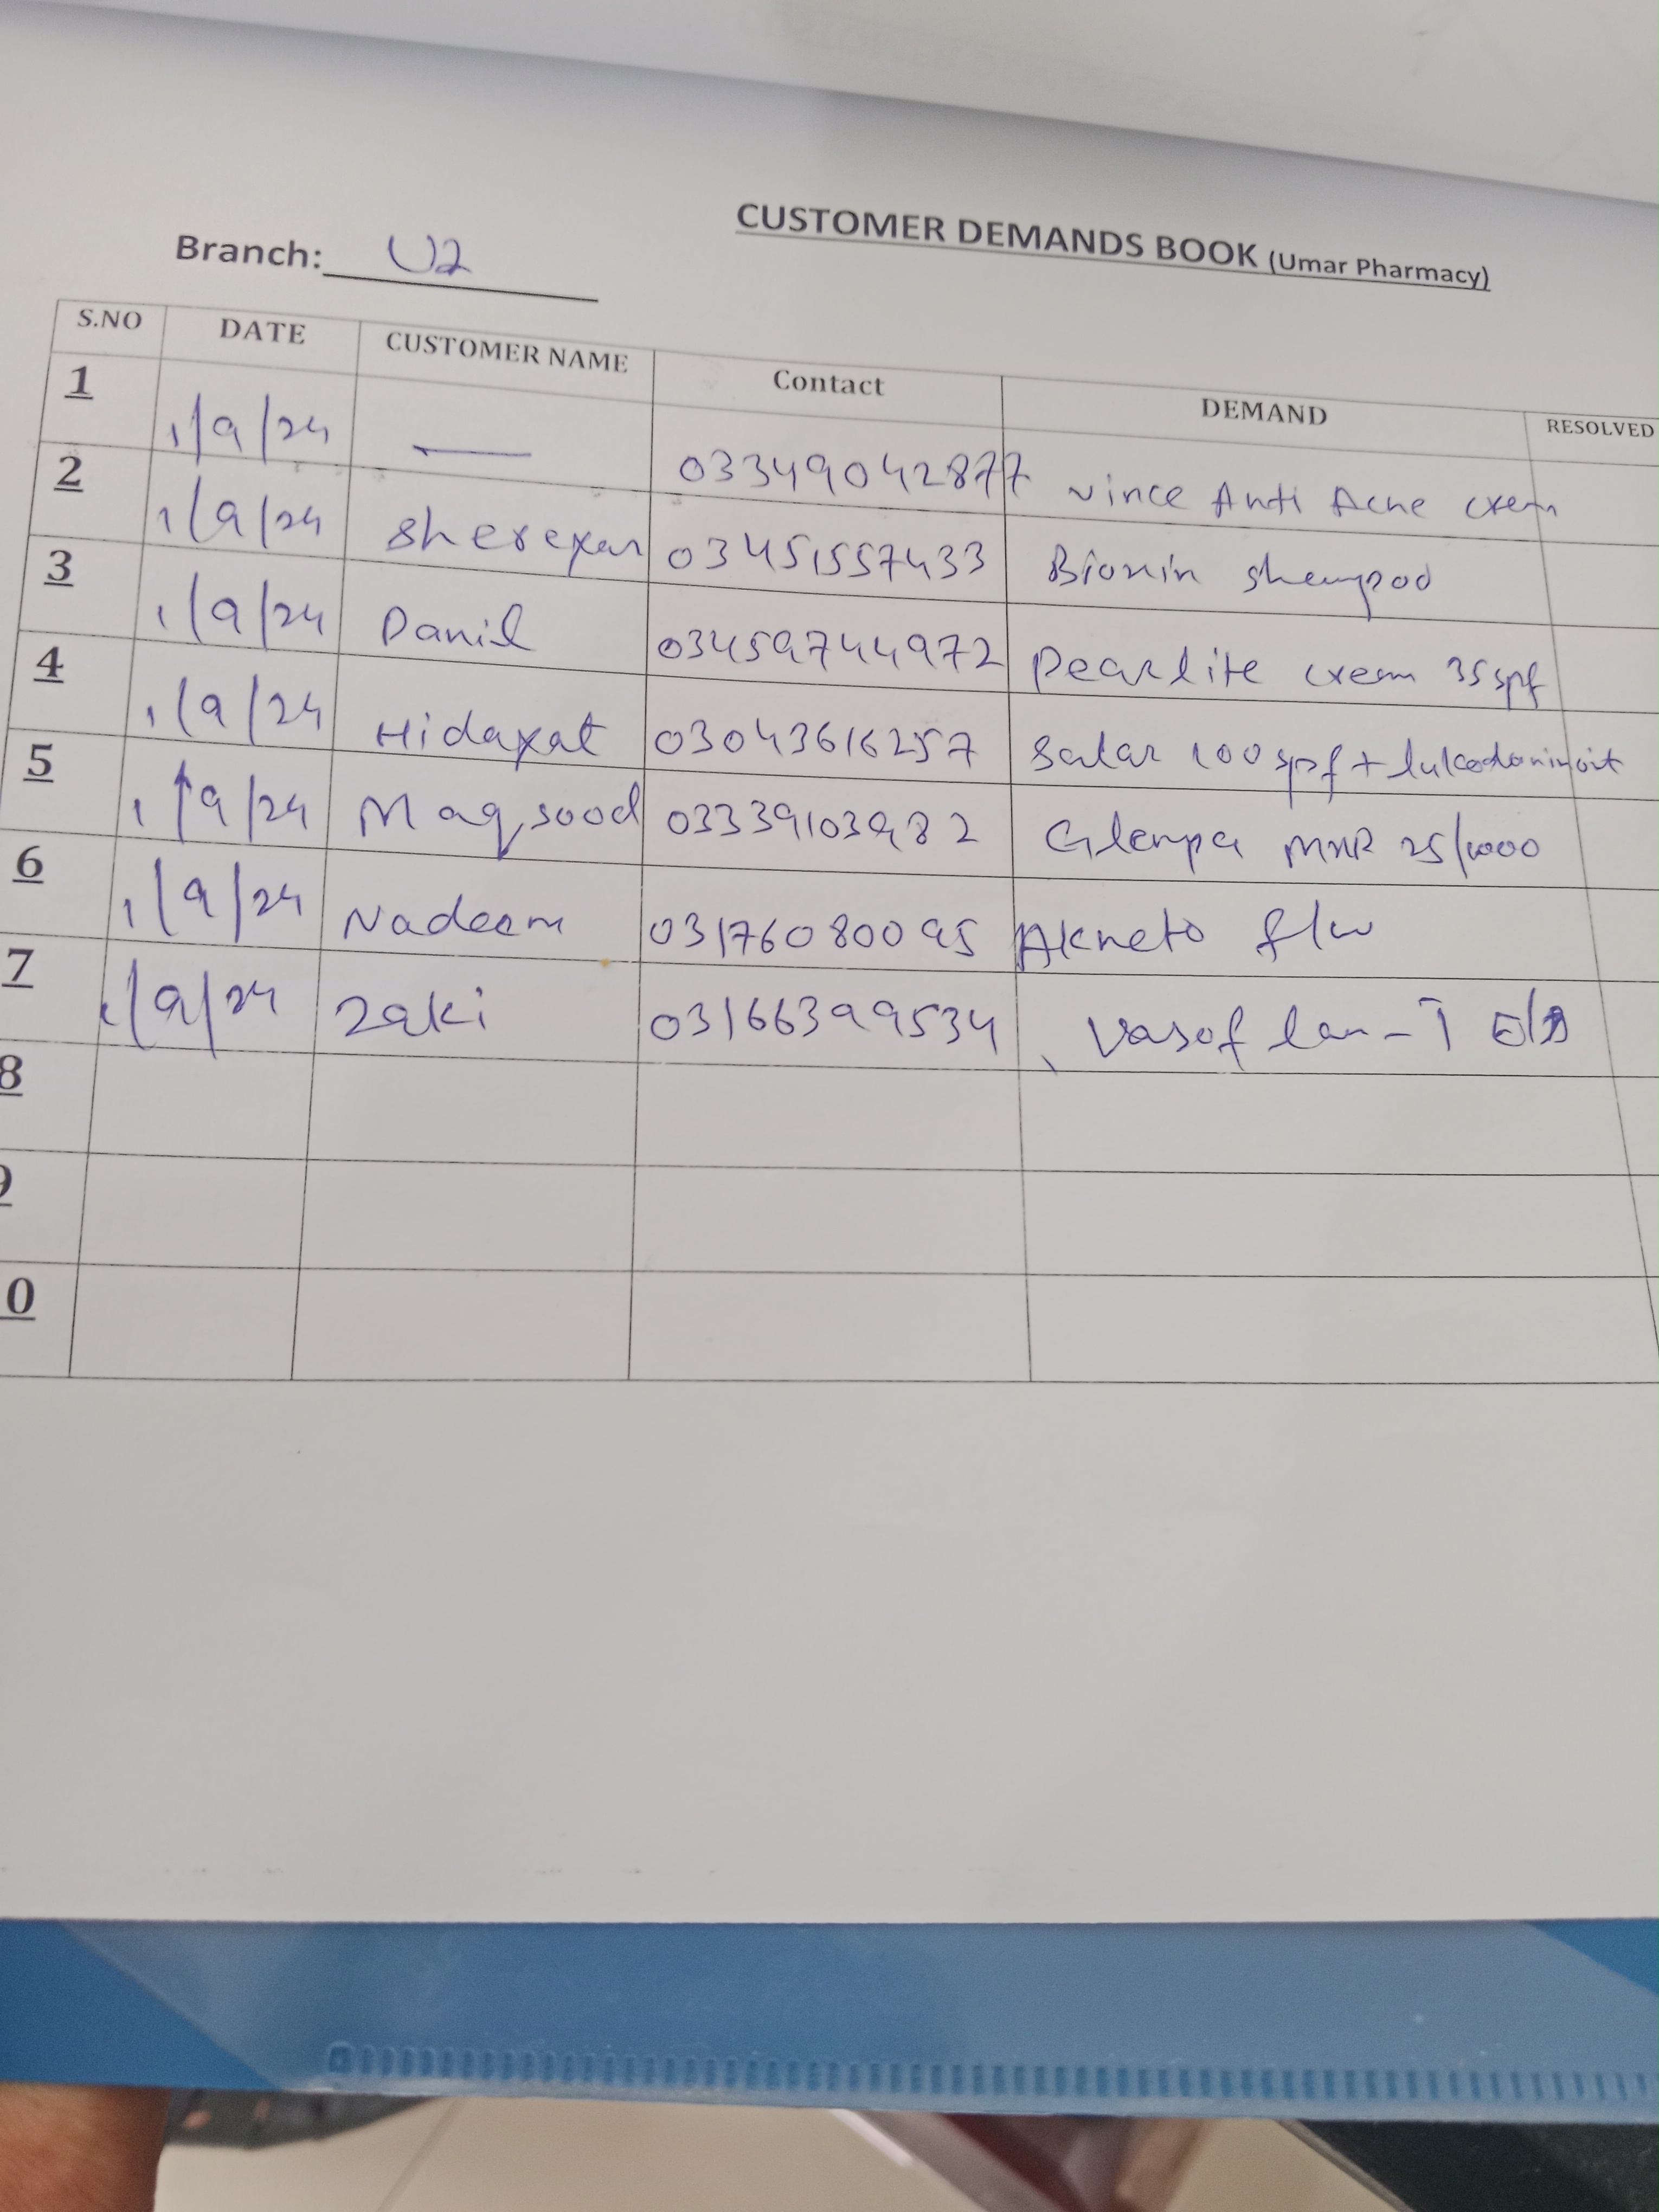 CUSTOMER DEMANDS BOOK (Umar Pharmacy)
Branch: U2
S.NO DATE CUSTOMER NAME Contact DEMAND RESOLVED
1 1/9/24 — 03349042877 Vince Anti Acne crem
2 1/9/24 03451557433 Bionin shempoo
3 1/9/24 Danil 03459744972 Pearlite crem 35 spf
4 1/9/24 Hidayat 03043616257 Salar 100 spf +
5 1/9/24 Maqsood 03339103982 Glempa MXR 25/1000
6 1/9/24 Nadeem 03176080095 Akneto f/w
7 1/9/24 Zaki 03166399534 Vasof lan-T E/D
8
9
0